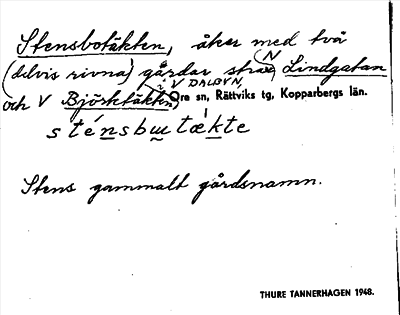 Stensbotäkten, åker med två
(delvis rivna) gårdar strax N Lindgatan
och V Björktäkten, i V DALBYN,
Ore sn, Rättviks tg, Kopparbergs län.
sténsbɯtækte
Stens gammalt gårdsnamn.
THURE TANNERHAGEN 1948.